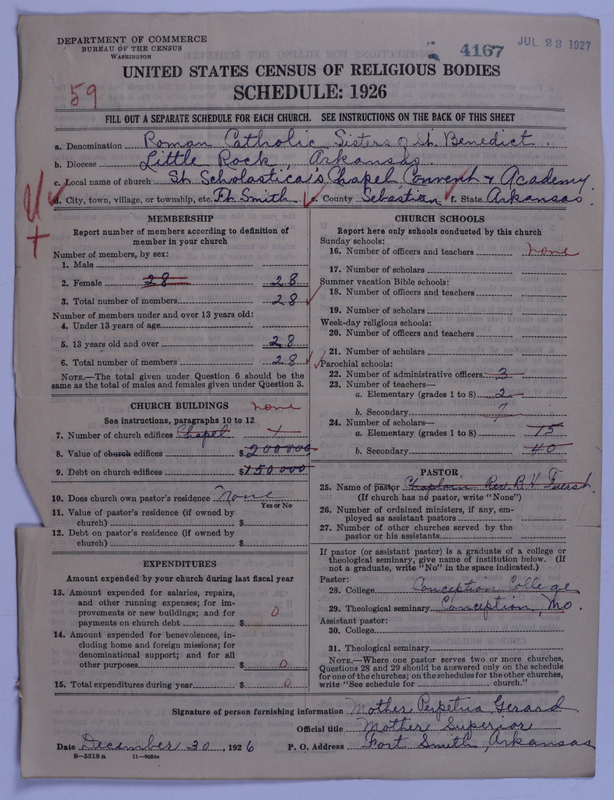 DEPARTMENT OF COMMERCE
BUREAU OF THE CENSUS
WASHINGTON
4167
JUL 23 1927
UNITED STATES CENSUS OF RELIGIOUS BODIES
SCHEDULE: 1926
59
FILL OUT A SEPARATE SCHEDULE FOR EACH CHURCH. SEE INSTRUCTIONS ON THE BACK OF THIS SHEET
a. Denomination Roman Catholic Sisters of St. Benedict.
b. Diocese Little Rock, Arkansas.
c. Local name of church St. Scholastica's Chapel, Convent & Academy.
d. City, town, village, or township, etc. Ft. Smith e. County Sebastian f. State Arkansas.
MEMBERSHIP
Report number of members according to definition of member in your church
Number of members, by sex:
1. Male
2. Female 28 28
3. Total number of members 28
Number of members under and over 13 years old:
4. Under 13 years of age
5. 13 years old and over 28
6. Total number of members 28
NOTE.—The total given under Question 6 should be the same as the total of males and females given under Question 3.
CHURCH BUILDINGS none
See instructions, paragraphs 10 to 12
7. Number of church edifices Chapel 1
8. Value of church edifices $ 200000
9. Debt on church edifices $ 150.000
10. Does church own pastor's residence None
Yes or No
11. Value of pastor's residence (if owned by church) $
12. Debt on pastor's residence (if owned by church) $
EXPENDITURES
Amount expended by your church during last fiscal year
13. Amount expended for salaries, repairs, and other running expenses; for improvements or new buildings; and for payments on church debt $ 0
14. Amount expended for benevolences, including home and foreign missions; for denominational support; and for all other purposes $ 0
15. Total expenditures during year $ 0
CHURCH SCHOOLS
Report here only schools conducted by this church
Sunday schools:
16. Number of officers and teachers none
17. Number of scholars
Summer vacation Bible schools:
18. Number of officers and teachers
19. Number of scholars
Week-day religious schools:
20. Number of officers and teachers
21. Number of scholars
Parochial schools:
22. Number of administrative officers 3
23. Number of teachers—
a. Elementary (grades 1 to 8) 2
b. Secondary 7
24. Number of scholars—
a. Elementary (grades 1 to 8) 15
b. Secondary 40
PASTOR
25. Name of pastor Chaplain Rev. B. V. Fuerst
(If church has no pastor, write "None")
26. Number of ordained ministers, if any, employed as assistant pastors
27. Number of other churches served by the pastor or his assistants
If pastor (or assistant pastor) is a graduate of a college or theological seminary, give name of institution below. (If not a graduate, write "No" in the space indicated.)
Pastor:
28. College Conception College
29. Theological seminary Conception, Mo.
Assistant pastor:
30. College
31. Theological seminary
NOTE.—Where one pastor serves two or more churches, Questions 28 and 29 should be answered only on the schedule for one of the churches; on the schedules for the other churches, write "See schedule for church."
Signature of person furnishing information Mother Perpetua Gerard
Official title Mother Superior
Date December 30, 1926 P. O. Address Fort Smith, Arkansas
8—5519a